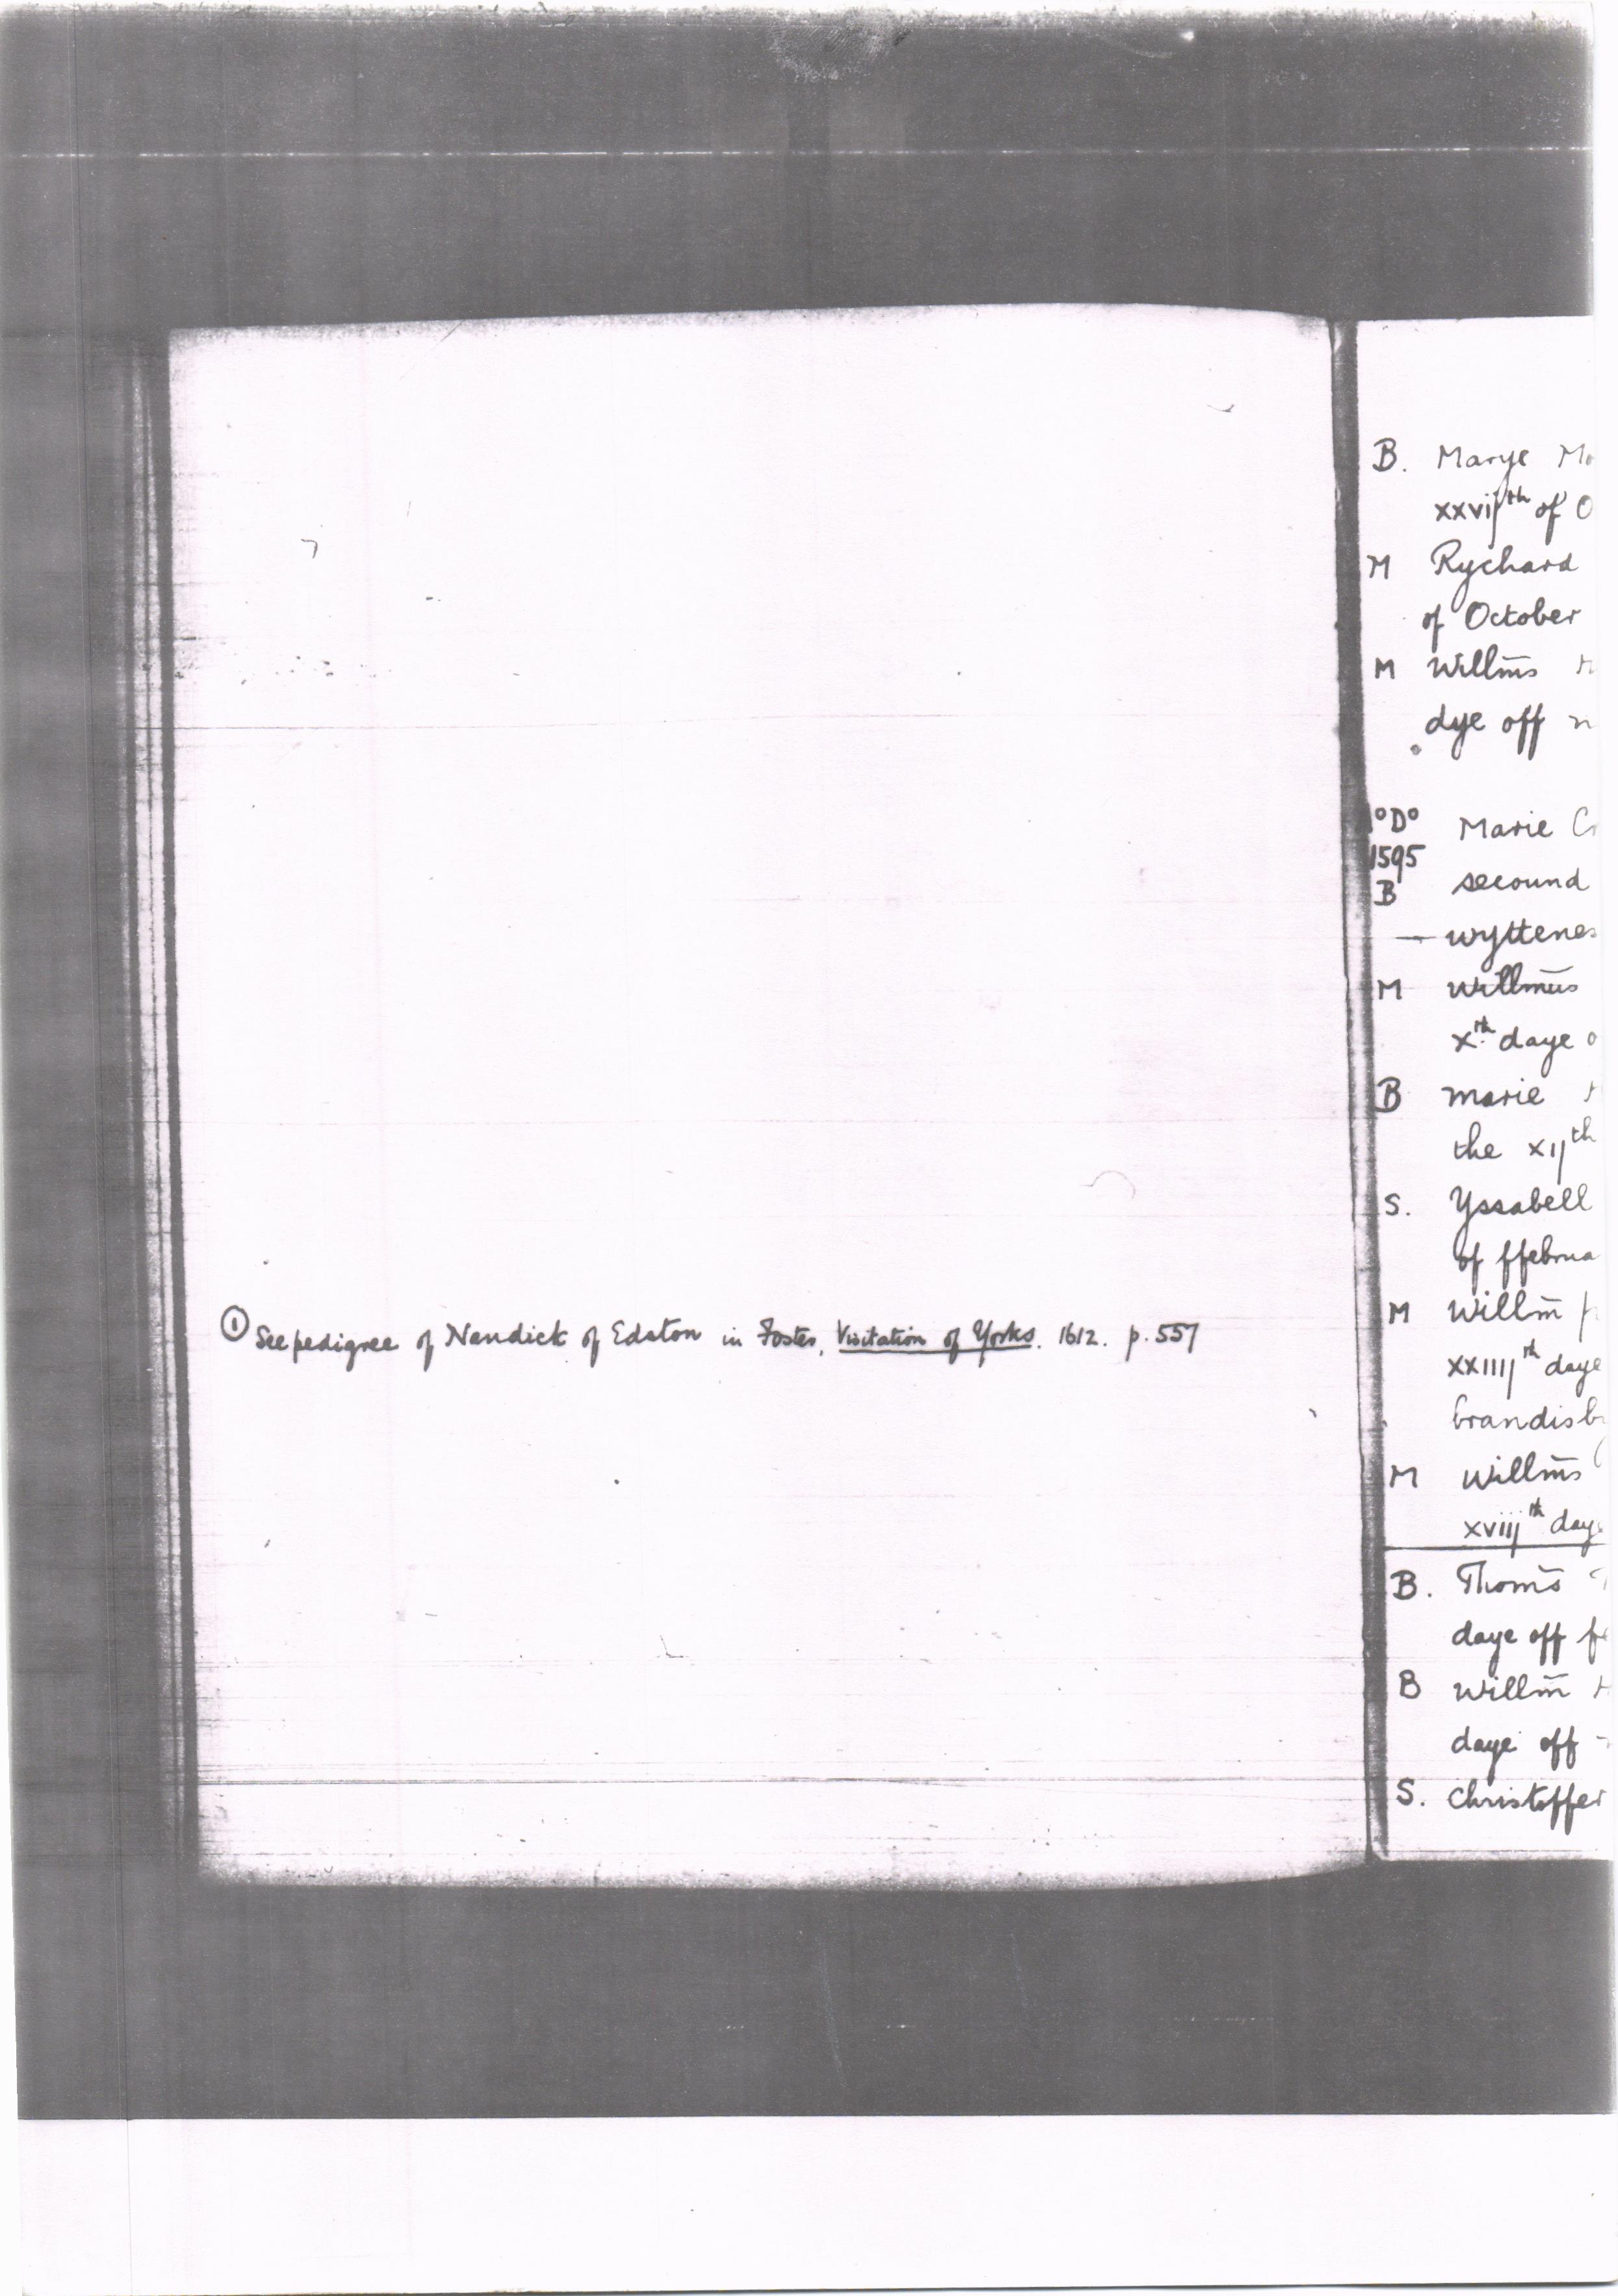 ① See pedigree of Nendick of Edston in Foster, Visitation of Yorks. 1612. p. 557
B. Marye
xxvijth of
M Rychard
of October
M Willm̄s
dye off
°D° Marie
1595
B secound
— wyttenes
M Willmūs
xth daye
B marie
the xijth
S. Yssabell
of ffebrua
M Willm̄
xxiiijth daye
brandisb
M Willm̄s
xviijth daye
B. Thom̄s
daye off
B Willm̄
daye off
S. Christoffer